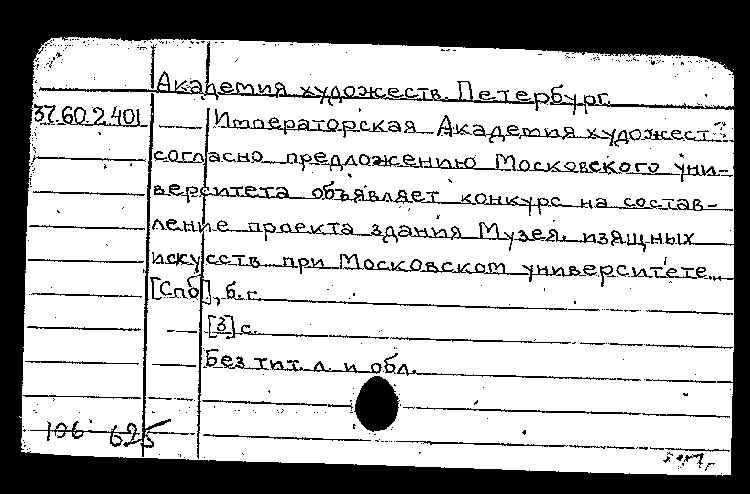 Академия художеств. Петербург.
37.60.2.401 Императорская Академия художест
согласно предложению Московского уни-
верситета объявляет конкурс на состав-
ление проекта здания Музея изящных
искусств при Московском университете...
[Спб], б. г.
[3] с.
Без тит. л. и обл.
106-625